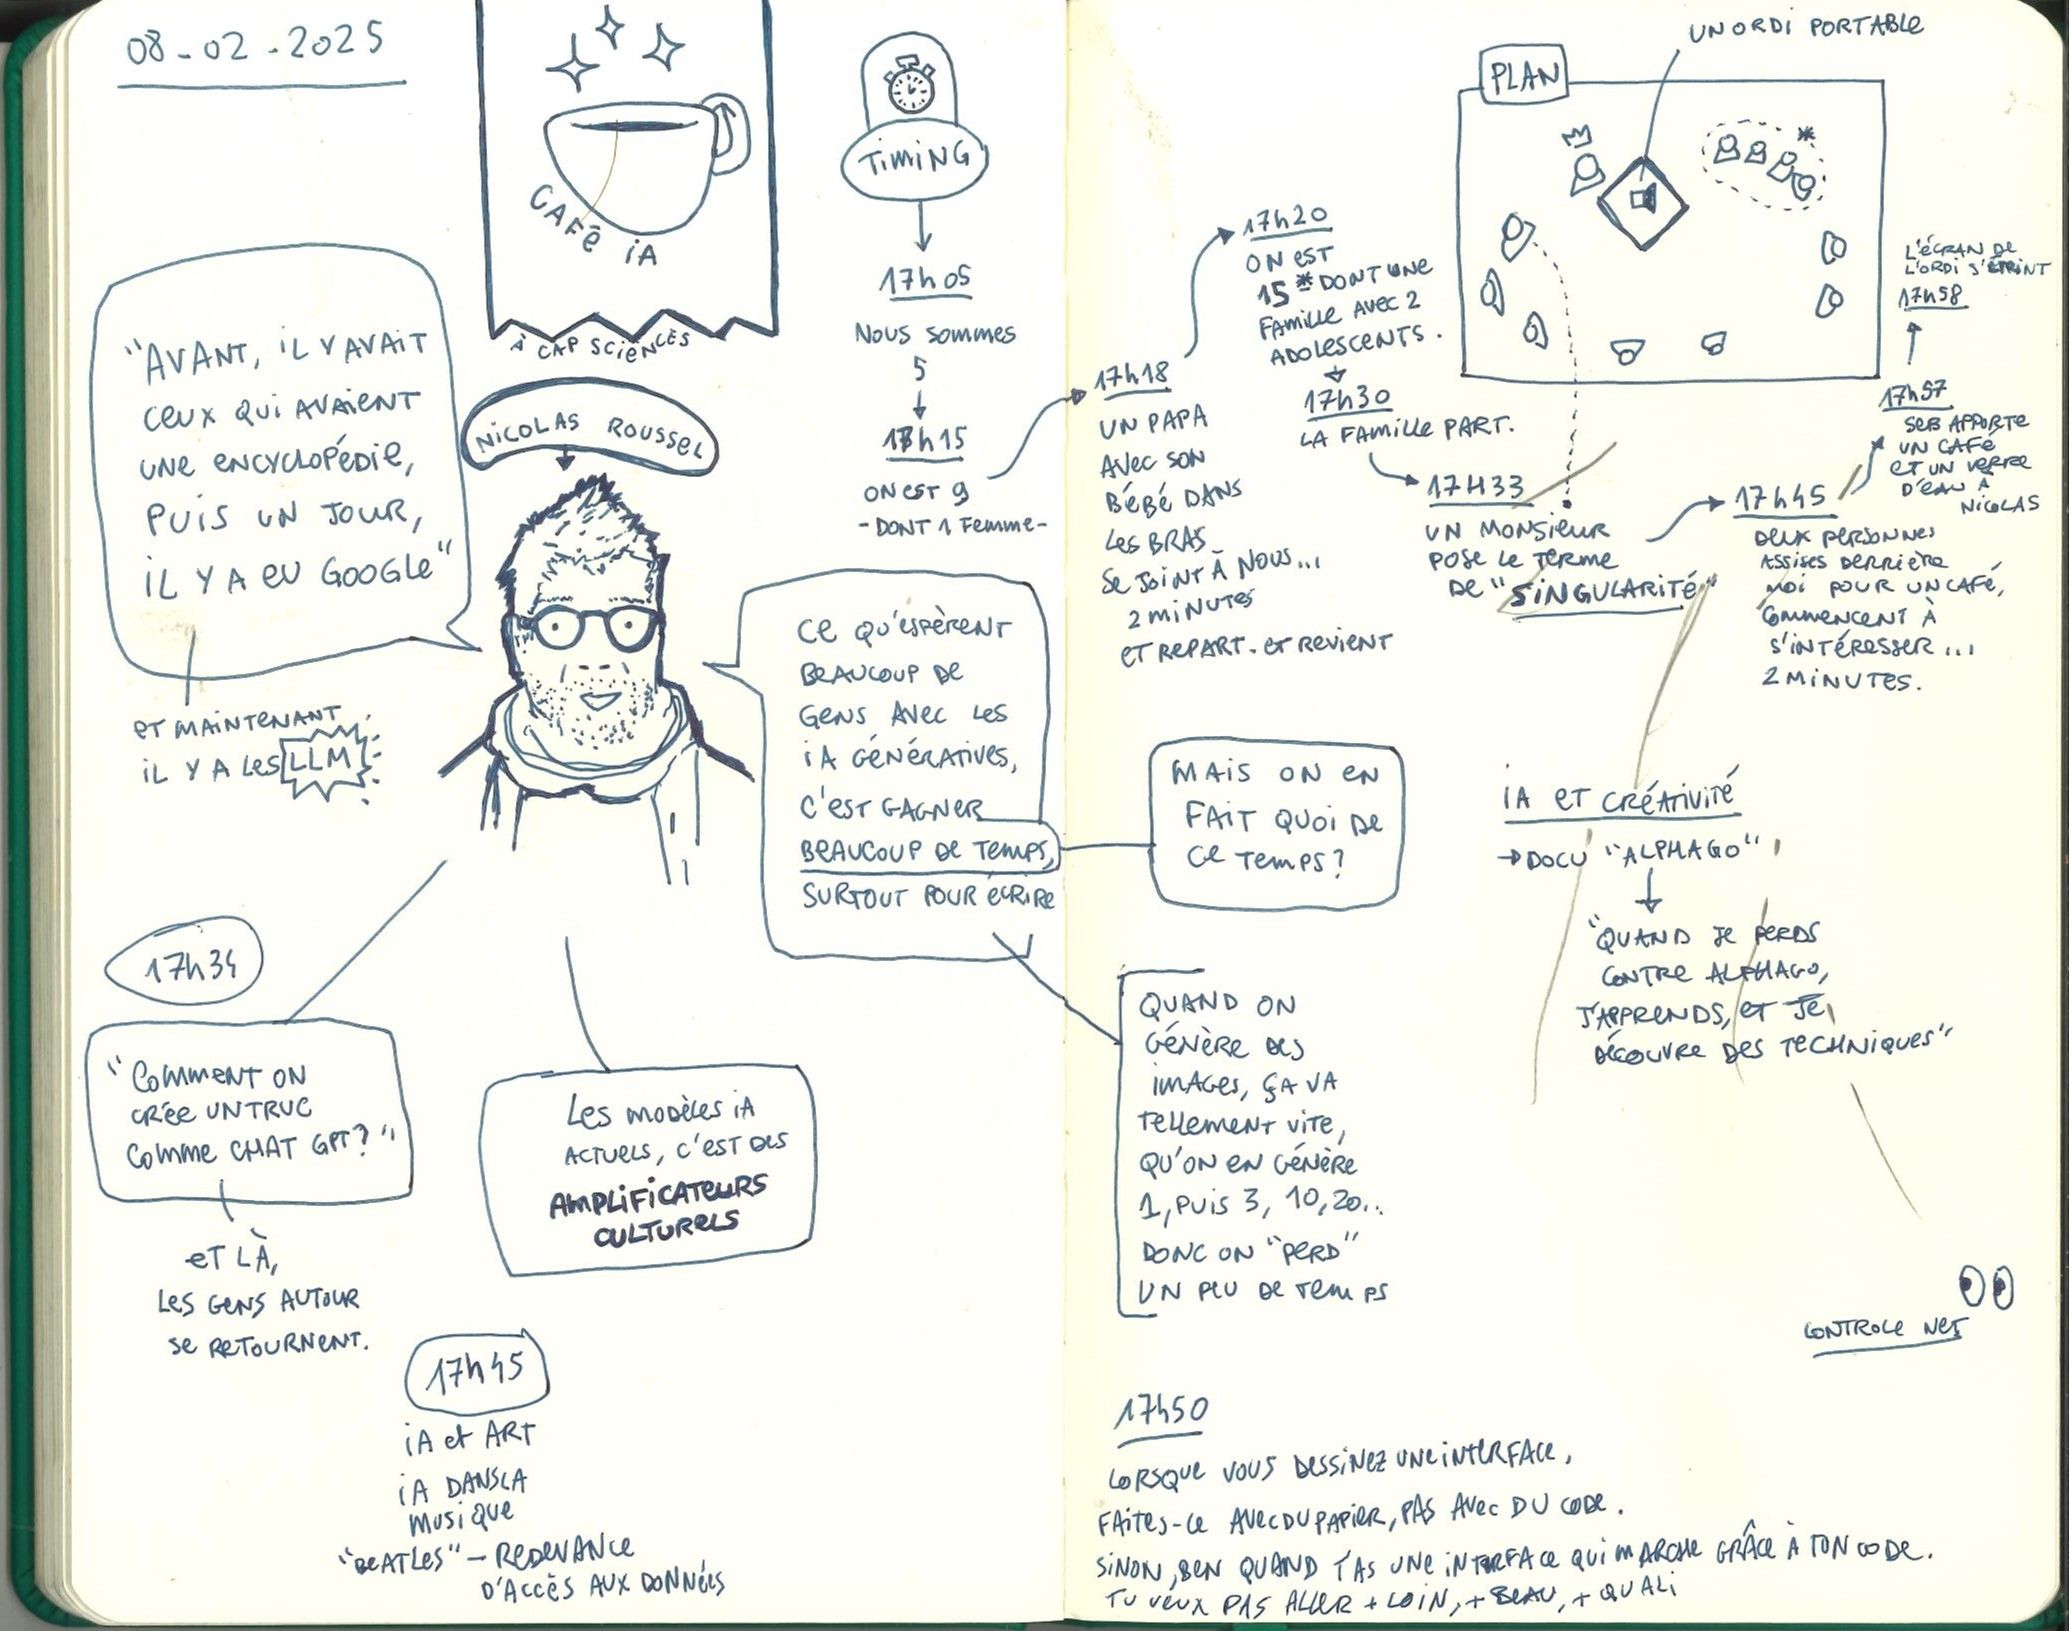 08-02-2025
CAFÉ iA
À CAP SCIENCES
NICOLAS ROUSSEL
"AVANT, IL Y AVAIT
CEUX QUI AVAIENT
UNE ENCYCLOPÉDIE,
PUIS UN JOUR,
IL Y A EU GOOGLE"
ET MAINTENANT
IL Y A LES LLM
TIMING
17h05
NOUS SOMMES
5
17h15
ON EST 9
- DONT 1 FEMME -
17h18
UN PAPA
AVEC SON
BÉBÉ DANS
LES BRAS
SE JOINT À NOUS...
2 MINUTES
ET REPART. ET REVIENT
17h20
ON EST
15 * DONT UNE
FAMILLE AVEC 2
ADOLESCENTS.
17h30
LA FAMILLE PART.
17H33
UN MONSIEUR
POSE LE TERME
DE "SINGULARITÉ"
17h45
DEUX PERSONNES
ASSISES DERRIÈRE
MOI POUR UN CAFÉ,
COMMENCENT À
S'INTÉRESSER...
2 MINUTES.
17h57
SEB APPORTE
UN CAFÉ
ET UN VERRE
D'EAU À
NICOLAS
L'ÉCRAN DE
L'ORDI S'ÉTEINT
17h58
PLAN
UN ORDI PORTABLE
*
CE QU'ESPÈRENT
BEAUCOUP DE
GENS AVEC LES
iA GÉNÉRATIVES,
C'EST GAGNER
BEAUCOUP DE TEMPS,
SURTOUT POUR ÉCRIRE
MAIS ON EN
FAIT QUOI DE
CE TEMPS?
QUAND ON
GÉNÈRE DES
IMAGES, ÇA VA
TELLEMENT VITE,
QU'ON EN GÉNÈRE
1, PUIS 3, 10, 20..
DONC ON "PERD"
UN PEU DE TEMPS
iA ET CRÉATIVITÉ
→ DOCU "ALPHAGO"
"QUAND JE PERDS
CONTRE ALPHAGO,
J'APPRENDS, ET JE
DÉCOUVRE DES TECHNIQUES"
17h34
"COMMENT ON
CRÉE UN TRUC
COMME CHAT GPT?"
ET LÀ,
LES GENS AUTOUR
SE RETOURNENT.
LES MODÈLES iA
ACTUELS, C'EST DES
AMPLIFICATEURS
CULTURELS
17h45
iA et ART
iA DANS LA
MUSIQUE
"BEATLES" – REDEVANCE
D'ACCÈS AUX DONNÉES
CONTROLE NET
17h50
LORSQUE VOUS DESSINEZ UNE INTERFACE,
FAITES-LE AVEC DU PAPIER, PAS AVEC DU CODE.
SINON, BEN QUAND T'AS UNE INTERFACE QUI MARCHE GRÂCE À TON CODE.
TU VEUX PAS ALLER + LOIN, + BEAU, + QUALI